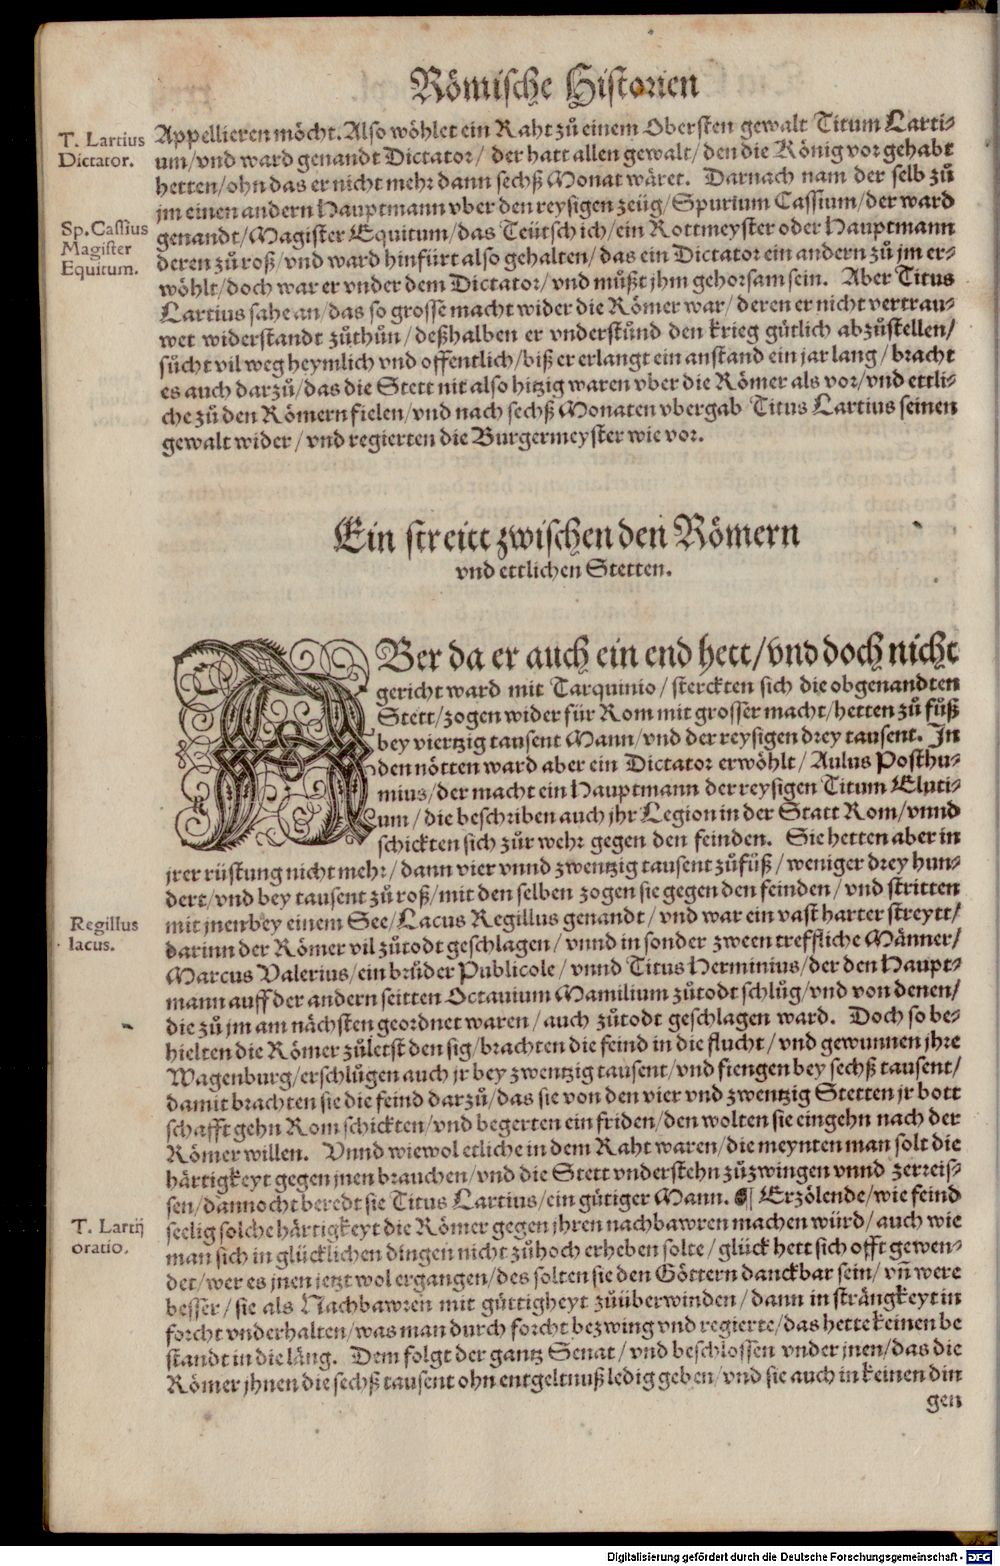 Römische Historien
T. Lartius
Dictator.
Appellieren möcht. Also wöhlet ein Raht zů einem Obersten gewalt Titum Larti-
um/vnd ward genandt Dictator/ der hatt allen gewalt/den die König vor gehabt
hetten/ohn das er nicht mehr dann sechß Monat wäret. Darnach nam der selb zů
jm einen andern Hauptmann vber den reysigen zeüg/Spurium Cassium/der ward
Sp. Cassius
Magister
Equitum.
genandt/Magister Equitum/das Teütsch ich/ein Rottmeyster oder Hauptmann
deren zů roß/vnd ward hinfürt also gehalten/das ein Dictator ein andern zů jm er-
wöhlt/doch war er vnder dem Dictator/vnd můßt jhm gehorsam sein. Aber Titus
Lartius sahe an/das so grosse macht wider die Römer war/deren er nicht vertrau-
wet widerstandt zůthůn/deßhalben er vnderstůnd den krieg gütlich abzůstellen/
sůcht vil weg heymlich vnd offentlich/biß er erlangt ein anstand ein jar lang/bracht
es auch darzů/das die Stett nit also hitzig waren vber die Römer als vor/vnd ettli-
che zů den Römern fielen/vnd nach sechß Monaten vbergab Titus Lartius seinen
gewalt wider/vnd regierten die Burgermeyster wie vor.
Ein streitt zwischen den Römern
vnd ettlichen Stetten.
ABer da er auch ein end hett/vnd doch nicht
gericht ward mit Tarquinio/sterckten sich die obgenandten
Stett/zogen wider für Rom mit grosser macht/hetten zů fůß
bey viertzig tausent Mann/vnd der reysigen drey tausent. In
den nötten ward aber ein Dictator erwöhlt/Aulus Posthu-
mius/der macht ein Hauptmann der reysigen Titum Eluti-
um/die beschriben auch jhr Legion in der Statt Rom/vnnd
schickten sich zůr wehr gegen den feinden. Sie hetten aber in
jrer rüstung nicht mehr/dann vier vnnd zwentzig tausent zůfůß/weniger drey hun-
dert/vnd bey tausent zů roß/mit den selben zogen sie gegen den feinden/vnd stritten
Regillus
lacus.
mit jnen bey einem See/Lacus Regillus genandt/vnd war ein vast harter streytt/
darinn der Römer vil zůtodt geschlagen/vnnd in sonder zween treffliche Männer/
Marcus Valerius/ein brůder Publicole/vnnd Titus Herminius/der den Haupt-
mann auff der andern seitten Octauium Mamilium zůtodt schlůg/vnd von denen/
die zů jm am nächsten geordnet waren/auch zůtodt geschlagen ward. Doch so be-
hielten die Römer zůletst den sig/brachten die feind in die flucht/vnd gewunnen jhre
Wagenburg/erschlůgen auch jr bey zwentzig tausent/vnd fiengen bey sechß tausent/
damit brachten sie die feind darzů/das sie von den vier vnd zwentzig Stetten jr bott
schafft gehn Rom schickten/vnd begerten ein friden/den wolten sie eingehn nach der
Römer willen. Vnnd wiewol etliche in dem Raht waren/die meynten man solt die
härtigkeyt gegen jnen brauchen/vnd die Stett vnderstehn zůzwingen vnnd zerreis-
sen/dannocht beredt sie Titus Lartius/ein gütiger Mann. ¶ Erzölende/wie feind
T. Lartij
oratio.
seelig solche härtigkeyt die Römer gegen jhren nachbawren machen würd/auch wie
man sich in glücklichen dingen nicht zůhoch erheben solte/glück hett sich offt gewen-
det/wer es jnen jetzt wol ergangen/des solten sie den Göttern danckbar sein/vñ were
besser/sie als Nachbawren mit güttigheyt zůüberwinden/dann in strängkeyt in
forcht vnderhalten/was man durch forcht bezwing vnd regierte/das hette keinen be
standt in die läng. Dem folgt der gantz Senat/vnd beschlossen vnder jnen/das die
Römer jhnen die sechß tausent ohn entgeltnuß ledig geben/vnd sie auch in keinen din
gen
Digitalisierung gefördert durch die Deutsche Forschungsgemeinschaft - DFG